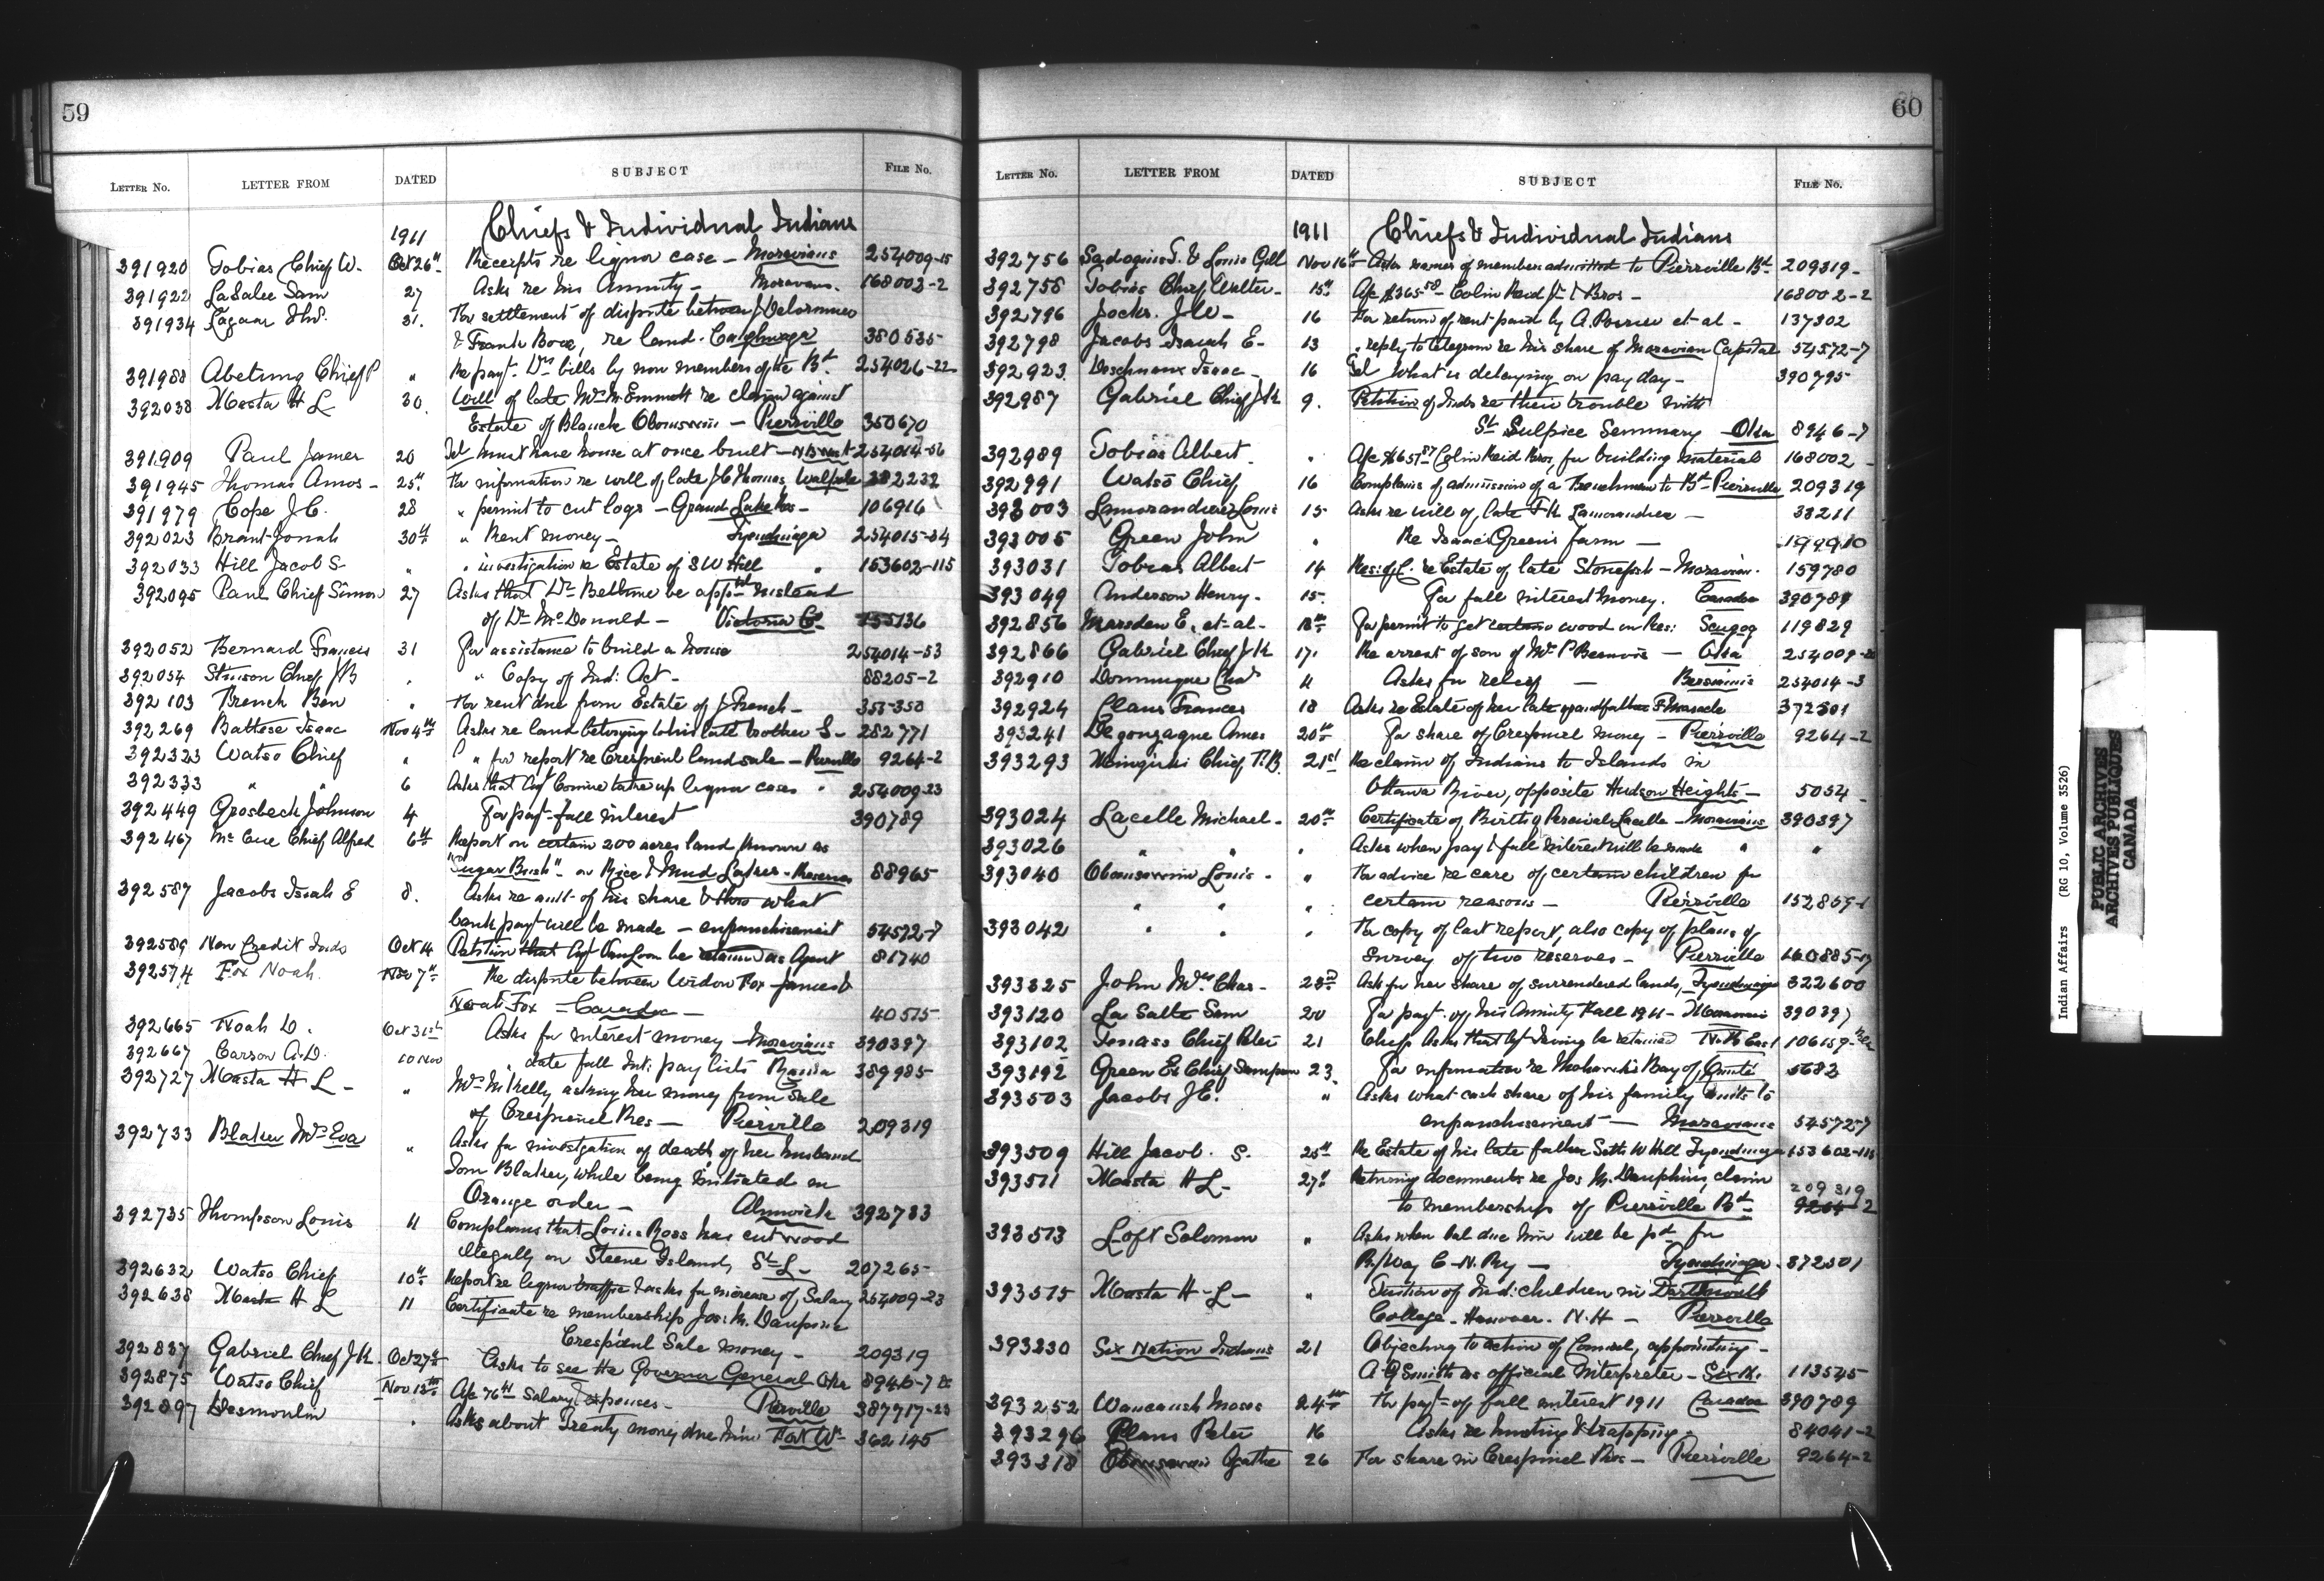 59
LETTER No. LETTER FROM DATED SUBJECT FILE No.
1911 Chiefs & Individual Indians
391920 Tobias Chief W. Oct 26th Receipts re liquor case - Moravians 254009-15
391922 LaSalee Sam 27 Asks re his Annuity - Moravians. 168002-2
391934 31. For settlement of dispute between J Delormier
& Frank Bove, re land. Caughnaga 380535
391988 Abetung Chief P " Re payt. Drs bills by non members of the Bd. 254026-22
392038 Masta H L 30. Will of late Mrs M. Emmett re claim against
Estate of Blanch Obomsawin - Pierrville 350670
391909 Paul James 20 Tel must have house at once built - 254014-56
391945 Thomas Amos - 25th For information re will of late J C Thomas, Walpole 382232
391979 Cope J.C. 28 " permit to cut logs - Grand Lake Res - 106916
392023 Brant Jonah 30th " Rent money - Tyendinaga 254015-34
392033 Hill Jacob S " " investigation re Estate of S W Hill " 153602-115
392095 Paul Chief Simon 27 Asks that Dr Bethune be apptd instead
of Dr McDonald - Victoria Co. 155136
392052 Bernard Francis 31 For assistance to build a house 254014-53
392054 Stinson Chief J B " " Copy of Ind: Act - 88205-2
392103 French Ben " For rent due from Estate of J French - 353-350
392269 Battese Isaac Nov 4th Asks re land belonging to his late brother S - 282771
392323 Watso Chief " " for report re Crespieul land sale - Pierville 9264-2
392333 " " 6 Asks that Agt Comire take up liquor cases " 254009-23
392449 Grosbeck Johnson 4 For payt fall interest 390789
392467 McCue Chief Alfred 6th Report on certain 200 acres land known as
"Sugar Bush" on Rice & Mud Lakes - Reserves 88965
392587 Jacobs Isiah E 8. Asks re amt of his share & what
bank payt will be made - enfranchisement 54572-7
392589 New Credit Inds Oct 14 Petition that Agt VanLoon be retained as Agent 81740
392574 Fox Noah. Nov 7th Re dispute between Widow Fox James &
Noah Fox - Caradoc - 40575
392665 Noah D. Oct 31st Asks for interest money - Moravians 390397
392667 Carson A.D. 10 Nov " date fall Int: pay lists Rama 389985
392727 Masta H L - " Mrs M Kelly asking her money from sale
of Crespieul Res - Pierville 209319
392733 Blaker Mrs Eva " Asks for investigation of death of her husband
Tom Blaker, while being initiated in
Orange order - Alnwick 392733
392735 Thompson Louis 11 Complains that Louis Ross has cut wood
illegally on Steene Island, St L - 207265
392632 Watso Chief 10th Report re liquor traffic & asks for increase of Salary 254009-23
392638 Masta H L 11 Certificate re membership Jos: M. Dauphine
Crespieul Sale money - 209319
392837 Gabriel Chief J K. Oct 27th Asks to see the Governor General Oka 8946-7
392875 Watso Chief Nov 13th A/c 76 Salary & expenses - Pierville 387717-23
392897 Desmoulin " Asks about Treaty money due him Fort Wm 362145
60
LETTER No. LETTER FROM DATED SUBJECT FILE No.
1911 Chiefs & Individual Indians
392756 & Louis Gill Nov 16th Asks names of members admitted to Pierrville Bd. 209319
392758 Tobias Chief Walter - 15th A/c $365.58 - Colin Reid Jr & Bros - 168002-2
392796 Jocks. J W - 16 For return of rent paid by A. Poirier et al - 137302
392798 Jacobs Isaiah E - 13 " reply to telegram re his share of Moravian Capital 54572-7
392923 Deschenaux Isaac - 16 Tel What is delaying on pay day - 390795
392987 Gabriel Chief J K 9. Petition of Inds re their trouble with
St Sulpice Seminary - Oka 8946-7
392989 Tobias Albert. " A/c $657.87 Colin Reid Bros, for building material 168002
392991 Watso Chief 16 Complains of admission of a Frenchman to Bd Pierrville 209319
393003 Lamorandiere Louis 15 Asks re will of late F K Lamorandiere - 38211
393005 Green John " Re Isaac Green's farm - 199910
393031 Tobias Albert 14 Res: of C. re Estate of late Stonefish - Moravian. 159780
393049 Anderson Henry - 15. For fall interest money. Caradoc 390789
392856 Marsden E. et al - 13th For permit to get certain wood on Res: Scugog 119829
392866 Gabriel Chief J K 17. Re arrest of son of Mrs P Beauvais - Oka 254009
392910 Dominique Chas 11 Asks for relief - Bersimis 254014-3
392924 Claus Frances 18 Asks re Estate of her late grandfather F Maracle 372501
393241 Degonzague Ames 20th For share of Crespieul money - Pierrville 9264-2
393293 Chief T.B. 21st Re claim of Indians to Islands in
Ottawa River, opposite Hudson Heights - 5054
393024 Lacelle Michael - 20th Certificate of Birth of Percival Lacelle - Moravians 390397
393026 " " " Asks when payt fall interest will be made " "
393040 Obomsawin Louis - " For advice re care of certain children for
" " " certain reasons - Pierville 152859-1
393042 " " For copy of last report, also copy of plans of
survey of two reserves - Pierville 160885-17
393325 John Mrs Chas - 23rd Asks for her share of surrendered lands, Tyendinaga 322600
393120 La Salle Sam 20 For payt. of his Annuity Fall 1911 - Moravians 390397
393102 Tenass Chief Peter 21 Chiefs Asks that Agt Irving be retained North East 106159
393192 Green Ex Chief Sampson 23. For information re Mohawks Bay of Quinte 5682
393503 Jacobs J E. " Asks what cash share of his family amts to
enfranchisement - Moravians 54572-7
393509 Hill Jacob. S. 25th Re Estate of his late father Seth W Hill Tyendinaga 153602-115
393511 Masta H L - 27th Returning documents re Jos M. Dauphine, claim
to membership of Pierrville Bd 209319
9264-2
393513 Loft Solomon " Asks when bal due him will be pd for
R/Way C-N. Ry - Tyendinaga. 372501
393515 Masta H - L - " Tuition of Ind: children in Dartmouth
College - Hanover. N.H - Pierrville
393230 Six Nation Indians 21 Objecting to action of Council, appointing -
A G Smith as official Interpreter - Six N. 113545
393252 Waucaush Moses 24th For payt of fall interest 1911 Caradoc 390789
393296 Plans Peter 16 Asks re hunting & trapping. 84041-2
393318 Obomsawin Agathe 26 For share in Crespieul Res - Pierrville 9264-2
Indian Affairs (RG 10, Volume 3526)
PUBLIC ARCHIVES
ARCHIVES PUBLIQUES
CANADA